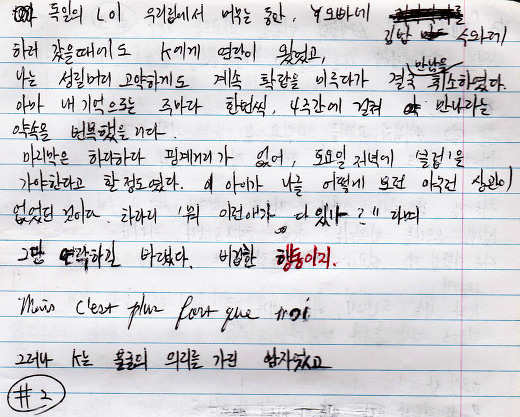 독일의 L이 우리집에서 머무는 동안, Y오빠네
김밥 속의
하러 갔을때에도 K에게 연락이 왔었고,
만남을
나는 성질머리 고약하게도 계속 확답을 미루다가 결국 취소하였다.
아마 내 기억으로는 주마다 한번씩, 4주간에 걸쳐 만나자는
약속을 번복했을 것이다.
마지막은 하다하다 핑계거리가 없어, 토요일 저녁에 '클럽'을
가야한다고 할 정도였다. 이 아이가 나를 어떻게 보던 아무런 상관이
없었던 것이다. 차라리 '뭐 이런애가 다 있나?' 라며
그만 연락하길 바랬다. 비겁한 행동이지.
Mais c'est plus fort que moi
그러나 K는 불굴의 의지를 가진 남자였고
#2